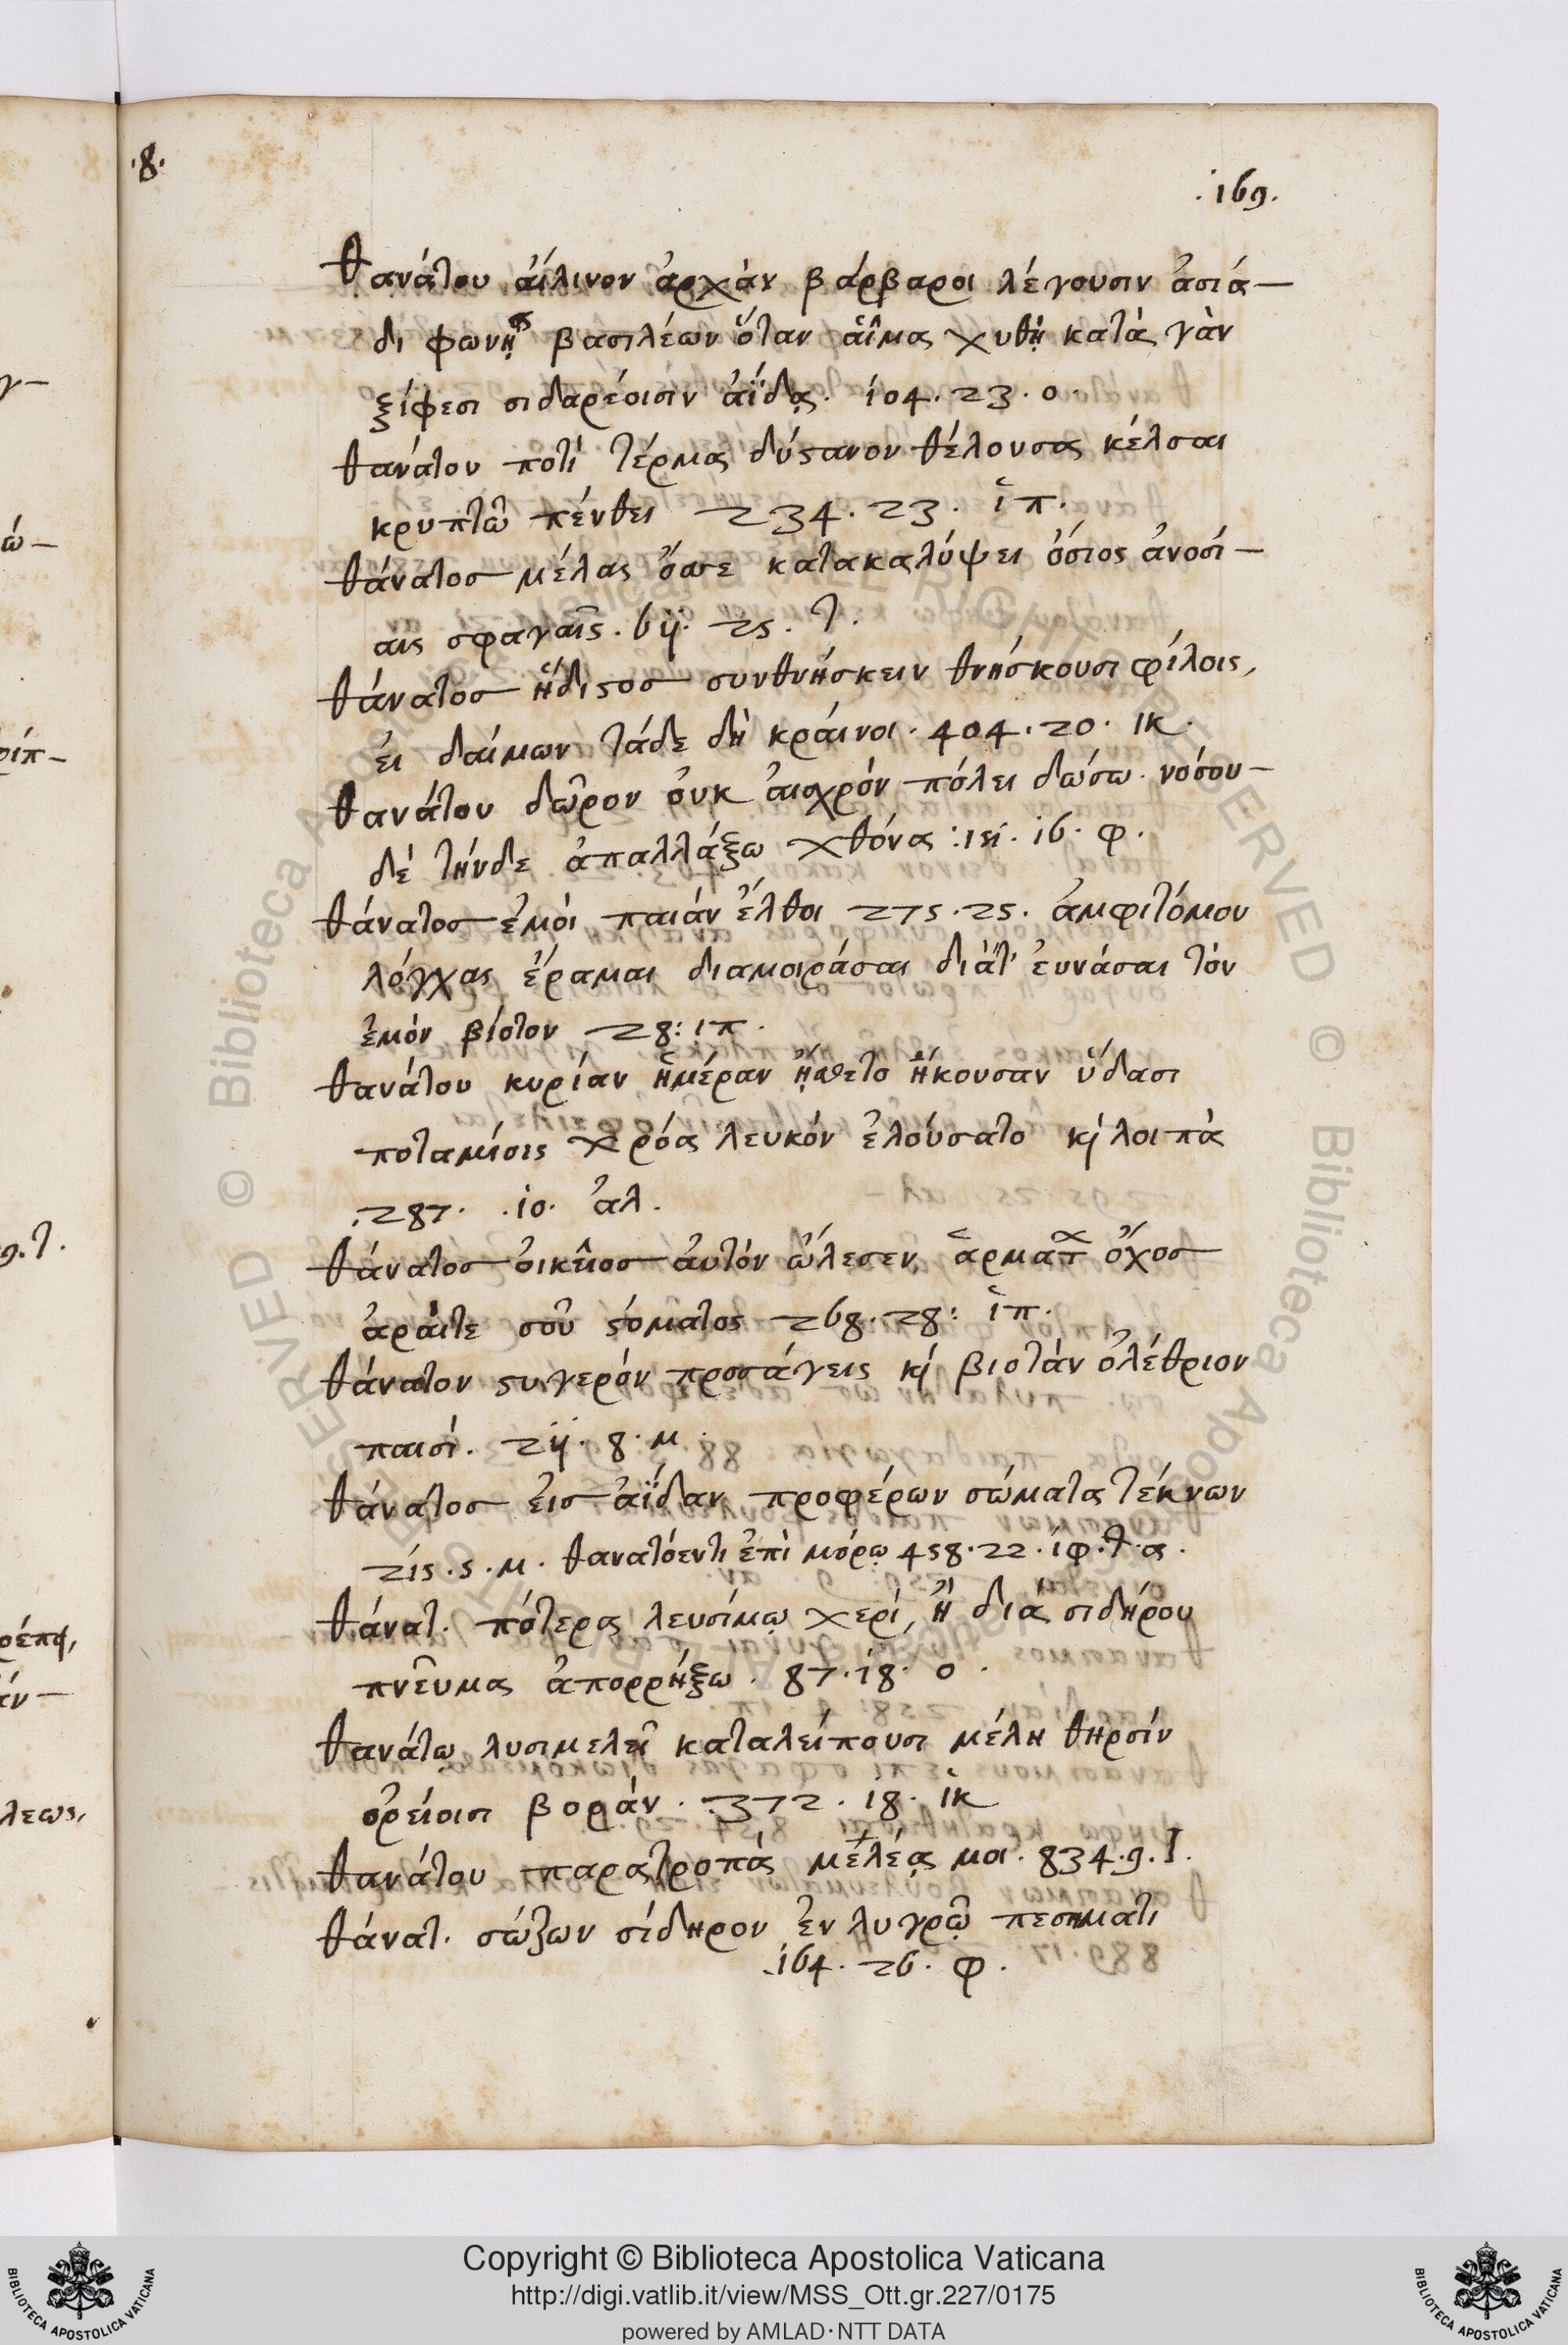 .8.
.169.
θανάτου ἀίλινον ἀρχὰν βάρβαροι λέγουσιν ἀσιά-
δι φωνῇ βασιλέων ὅταν ἁῖμα χυθῇ κατὰ γὰν
ξίφεσι σιδαρέοισιν ἀΐδα. 104. 23. ο.
θανάτου ποτὶ τέρμα δύϛανον θέλουσα κέλσαι
κρυπτῶ πένθει 234. 23. ἱπ.
θάνατος μέλας ὄσσε κατακαλύψει ὅσιος ἀνοσί-
αις σφαγαῖς. 6ij. 25. τ.
θάνατος ἥδιϛος συνθνήσκειν θνήσκουσι φίλοις,
ἐι δαίμων τάδε δὴ κράινοι. 404. 20. ικ.
θανάτου δῶρον ὀυκ ἀισχρόν πόλει δώσω. νόσου-
δέ τήνδε ἀπαλλάξω χθόνα: 151. 16. φ.
θάνατος ἐμόι παιάν ἔλθοι 275. 25. ἀμφιτόμου
λόγχας ἔραμαι διαμοιράσαι διάτ' ἐυνάσαι τόν
ἐμόν βίοτον 28: ιπ.
θανάτου κυρίαν ἡμέραν ᾔσθετο ἥκουσαν ὕδασι
ποταμίοις χρόα λευκόν ἐλούσατο κί λοιπὰ
287. .10. ἀλ.
θάνατος ὀικεῖος ἀυτόν ὤλεσεν, ἁρματ ὄχος
ἀράιτε σοῦ ϛόματος 268. 28: ἱπ.
θάνατον ϛυγερόν προσάγεις κί βιοτὰν ὀλέθριον
παισί. 2ij. 8. μ.
θάνατος ἐις ἀΐδαν προφέρων σώματα τέκνων
215. 5. μ. θανατόεντι ἐπὶ μόρῳ 458. 22. ἰφ. τ. α.
θάνατ. πότερα λευσίμῳ χερί, ἢ διά σιδήρου
πνεῦμα ἀπορρήξω. 87. 18. ο.
θανάτω λυσιμελεῖ καταλείπουσι μέλη θηρσίν
ὀρείοισι βοράν. 372. 18. ἱκ
θανάτου παρατροπὰ μέλέα μοι. 834. 9. Ι.
θάνατ. σώζων σίδηρον ἐν λυγρῷ πεσήματι
164. 26. φ.
Copyright © Biblioteca Apostolica Vaticana
http://digi.vatlib.it/view/MSS_Ott.gr.227/0175
powered by AMLAD·NTT DATA